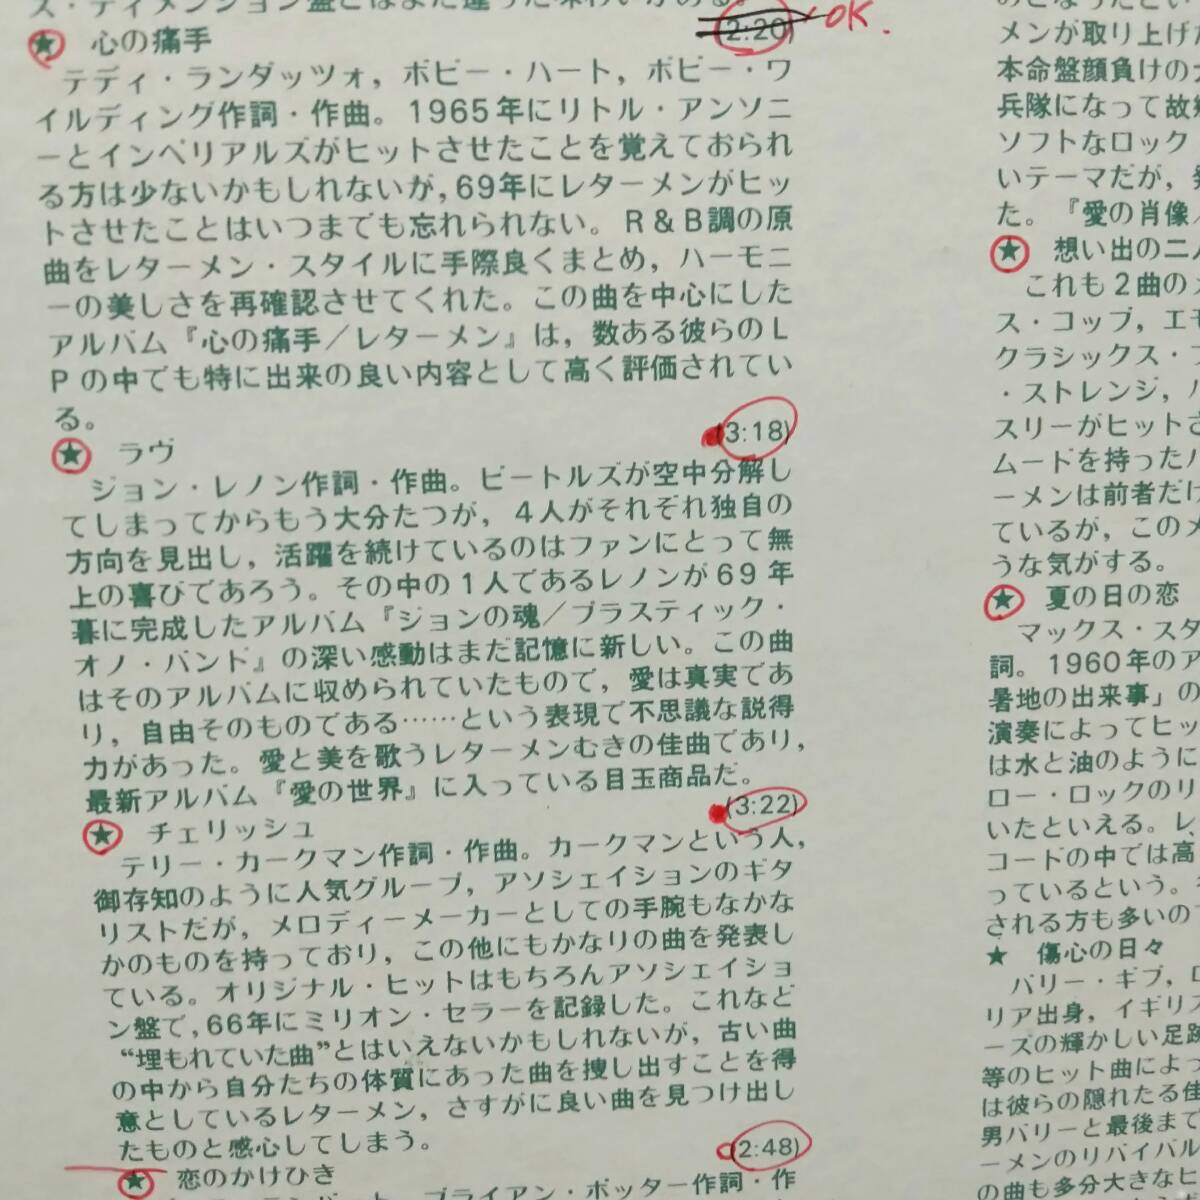 ス・ディメンション盤とはまた違った味わいがある。
(2:20) OK.
★ 心の痛手
テディ・ランダッツォ，ボビー・ハート，ボビー・ワ
イルディング作詞・作曲。1965年にリトル・アンソニ
ーとインペリアルズがヒットさせたことを覚えておられ
る方は少ないかもしれないが，69年にレターメンがヒッ
トさせたことはいつまでも忘れられない。R＆B調の原
曲をレターメン・スタイルに手際良くまとめ，ハーモニ
ーの美しさを再確認させてくれた。この曲を中心にした
アルバム『心の痛手／レターメン』は，数ある彼らのL
Pの中でも特に出来の良い内容として高く評価されてい
る。
(3:18)
★ ラヴ
ジョン・レノン作詞・作曲。ビートルズが空中分解し
てしまってからもう大分たつが，4人がそれぞれ独自の
方向を見出し，活躍を続けているのはファンにとって無
上の喜びであろう。その中の1人であるレノンが69年
暮に完成したアルバム『ジョンの魂／プラスティック・
オノ・バンド』の深い感動はまだ記憶に新しい。この曲
はそのアルバムに収められていたもので，愛は真実であ
り，自由そのものである……という表現で不思議な説得
力があった。愛と美を歌うレターメンむきの佳曲であり，
最新アルバム『愛の世界』に入っている目玉商品だ。
(3:22)
★ チェリッシュ
テリー・カークマン作詞・作曲。カークマンという人，
御存知のように人気グループ，アソシェイションのギタ
リストだが，メロディーメーカーとしての手腕もなかな
かのものを持っており，この他にもかなりの曲を発表し
ている。オリジナル・ヒットはもちろんアソシェイショ
ン盤で，66年にミリオン・セラーを記録した。これなど
“埋もれていた曲”とはいえないかもしれないが，古い曲
の中から自分たちの体質にあった曲を捜し出すことを得
意としているレターメン，さすがに良い曲を見つけ出し
たものと感心してしまう。
(2:48)
★ 恋のかけひき
ブライアン・ポッター作詞・作
メンが取り上げた
本命盤顔負けの
兵隊になって故郷
ソフトなロック
いテーマだが，
た。『愛の肖像
★ 想い出の二人
これも2曲の
ス・コップ，エモ
クラシックス・
・ストレンジ，
スリーがヒットさ
ムードを持った
ーメンは前者だけ
ているが，このメ
うな気がする。
★ 夏の日の恋
マックス・スタ
詞。1960年のア
暑地の出来事」の
演奏によってヒッ
は水と油のように
ロー・ロックのリ
いたといえる。レ
コードの中では高
っているという。
される方も多いの
★ 傷心の日々
バリー・ギブ，ロ
リア出身，イギリス
ーズの輝かしい足跡
等のヒット曲によっ
は彼らの隠れたる佳
男バリーと最後まで
ーメンのリバイバル
の曲も多分大きなヒ